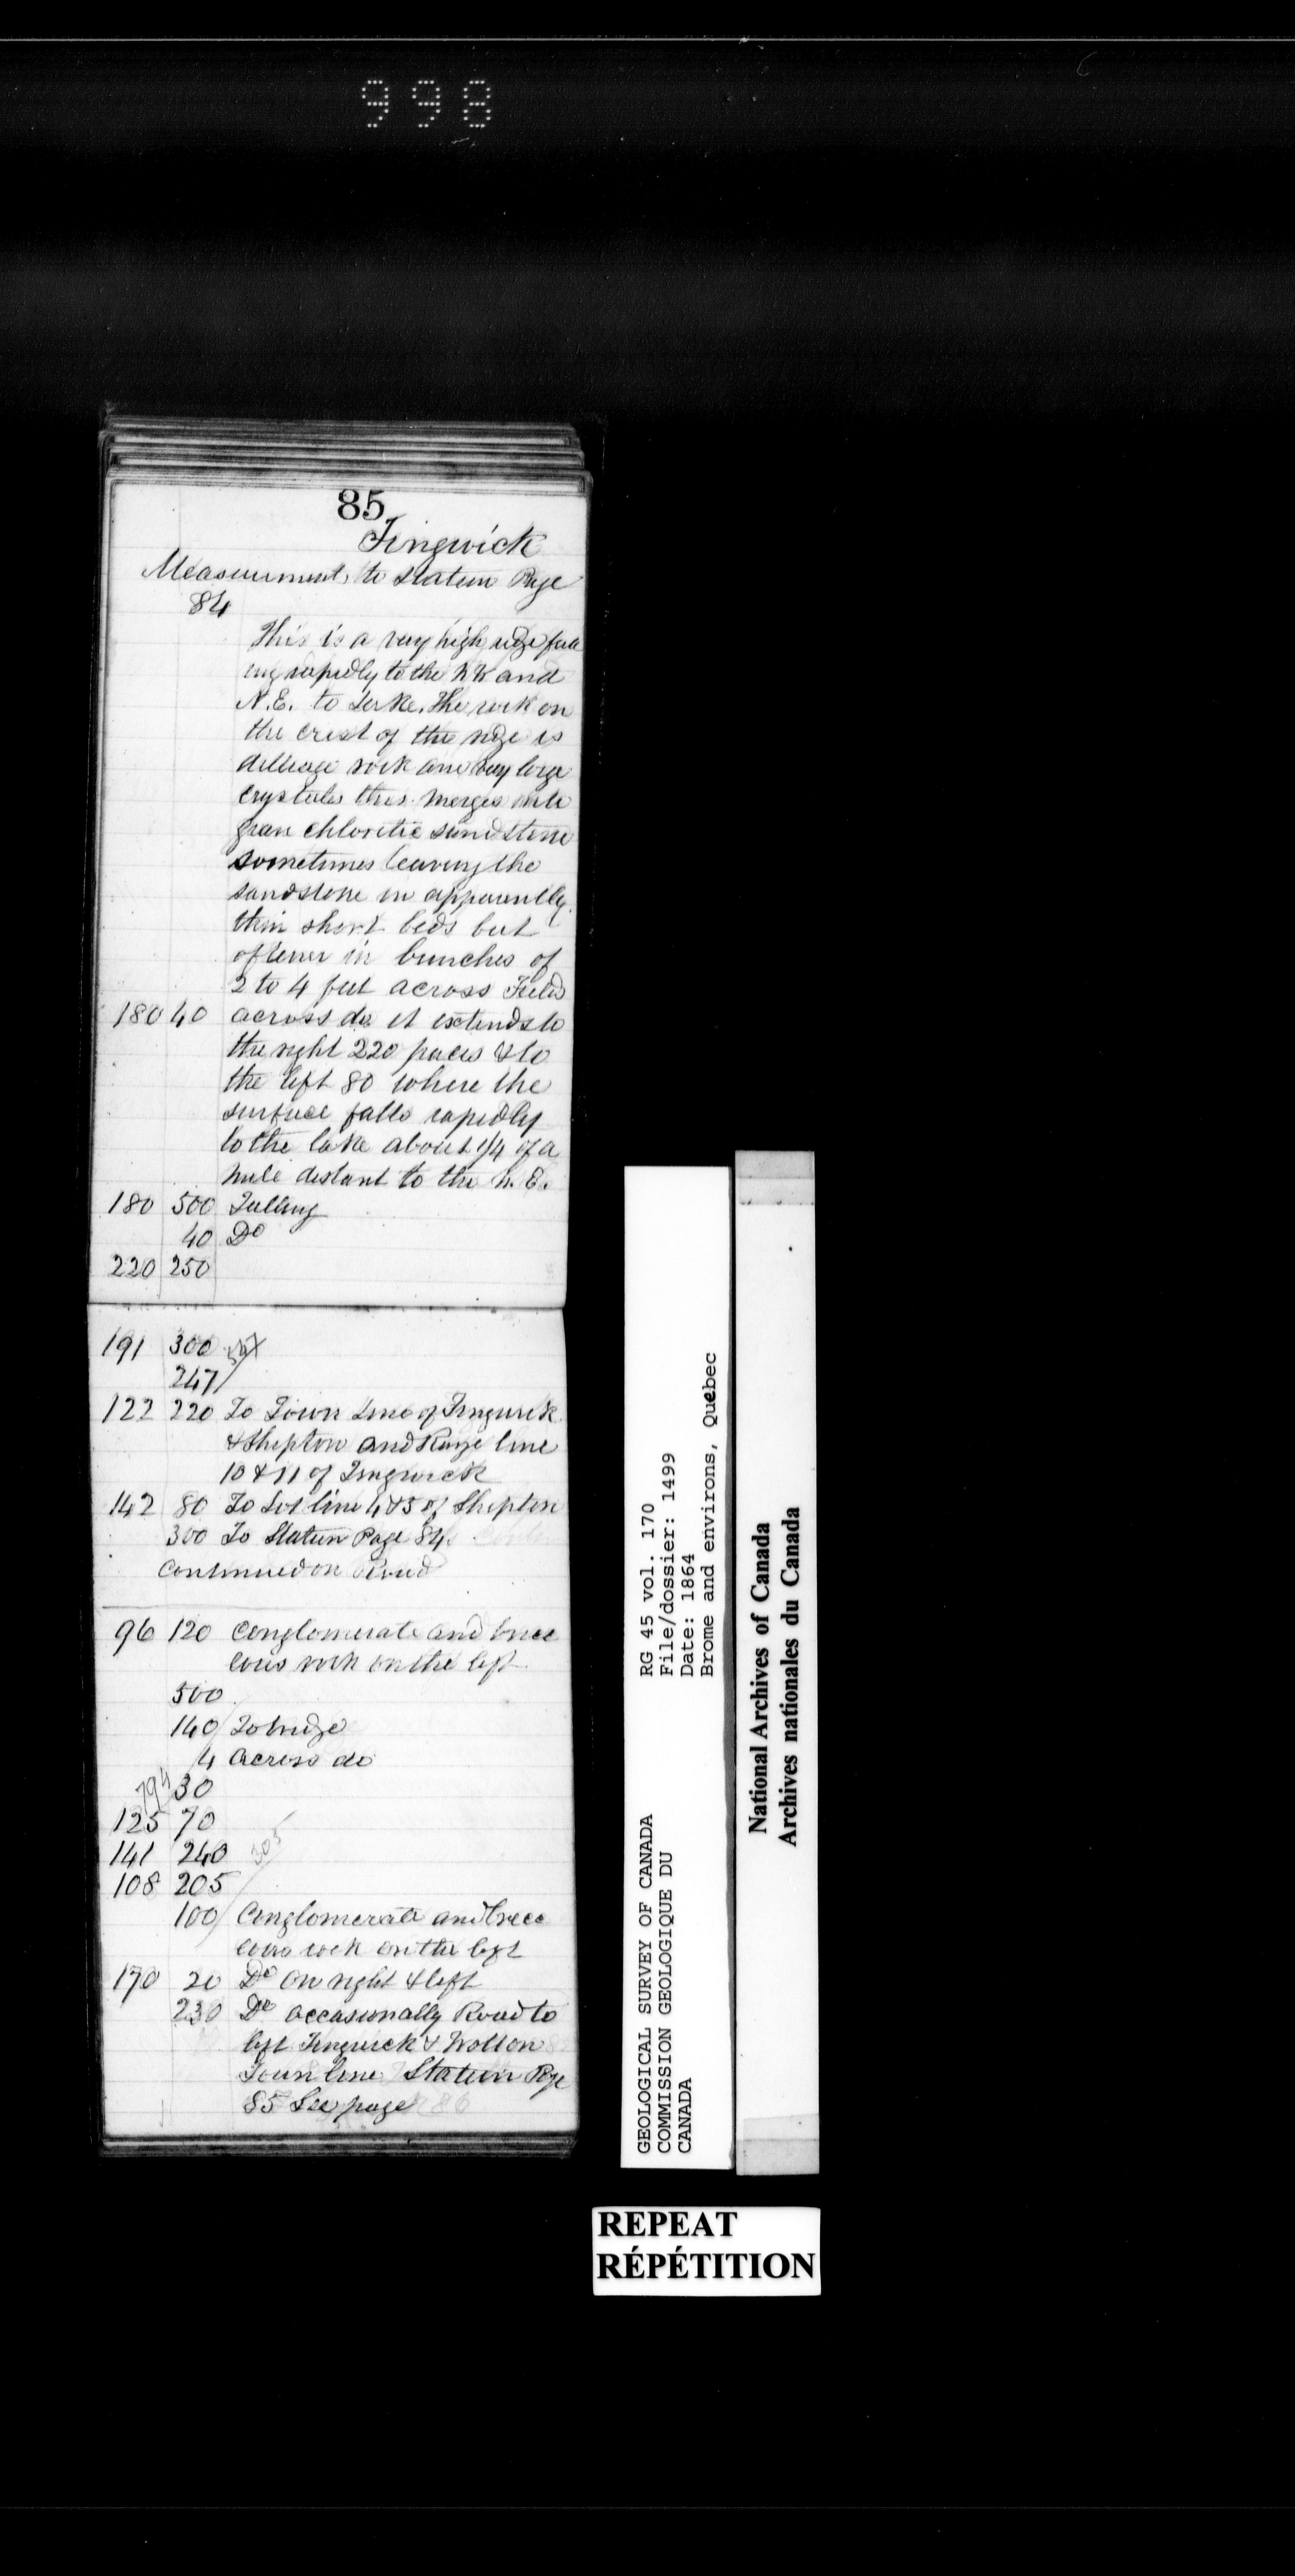 998
85
Tingwick
Measurements to Station Page
84
This is a very high ridge fall
ing rapidly to the N W and
N.E. to Lake. The rock on
the crest of the ridge is
diallage rock and very large
crystals this merges into
green chloritic sandstone
sometimes leaving the
sandstone in apparently
thin short beds but
oftener in bunches of
2 to 4 feet across Fields
180 40 across do it extends to
the right 220 paces & to
the left 80 where the
surface falls rapidly
to the lake about 1/4 of a
mile distant to the N. E.
180 500 Falling
40 Do
220 250
191 300
247
122 220 To Town Line of Tingwick
& Shipton and Range line
10 & 11 of Tingwick
142 80 To Lot line 4 & 5 of Shipton
300 To Station Page 84.
Continued on Road
96 120 Conglomerate and brec
cous rock on the left
500
140 To bridge
4 across do
794 30
125 70
141 240 305
108 205
100 Conglomerate and brecc
cous rock on the left
170 20 Do on right & left
230 Do occasionally Road to
left Tingwick & Wotton
Town line Station Page
85 See page 86
GEOLOGICAL SURVEY OF CANADA
COMMISSION GEOLOGIQUE DU
CANADA
RG 45 vol. 170
File/dossier: 1499
Date: 1864
Brome and environs, Quebec
National Archives of Canada
Archives nationales du Canada
REPEAT
RÉPÉTITION